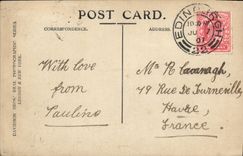 POST CARD.
CORRESPONDENCE.
ADDRESS.
DAVIDSON BROS. REAL PHOTOGRAPHIC SERIES
LONDON & NEW YORK.
EDINBURGH
JU
07
With love
from
Pauline
Mr R Cavanagh
49 Rue de Tourneville
Havre,
France.